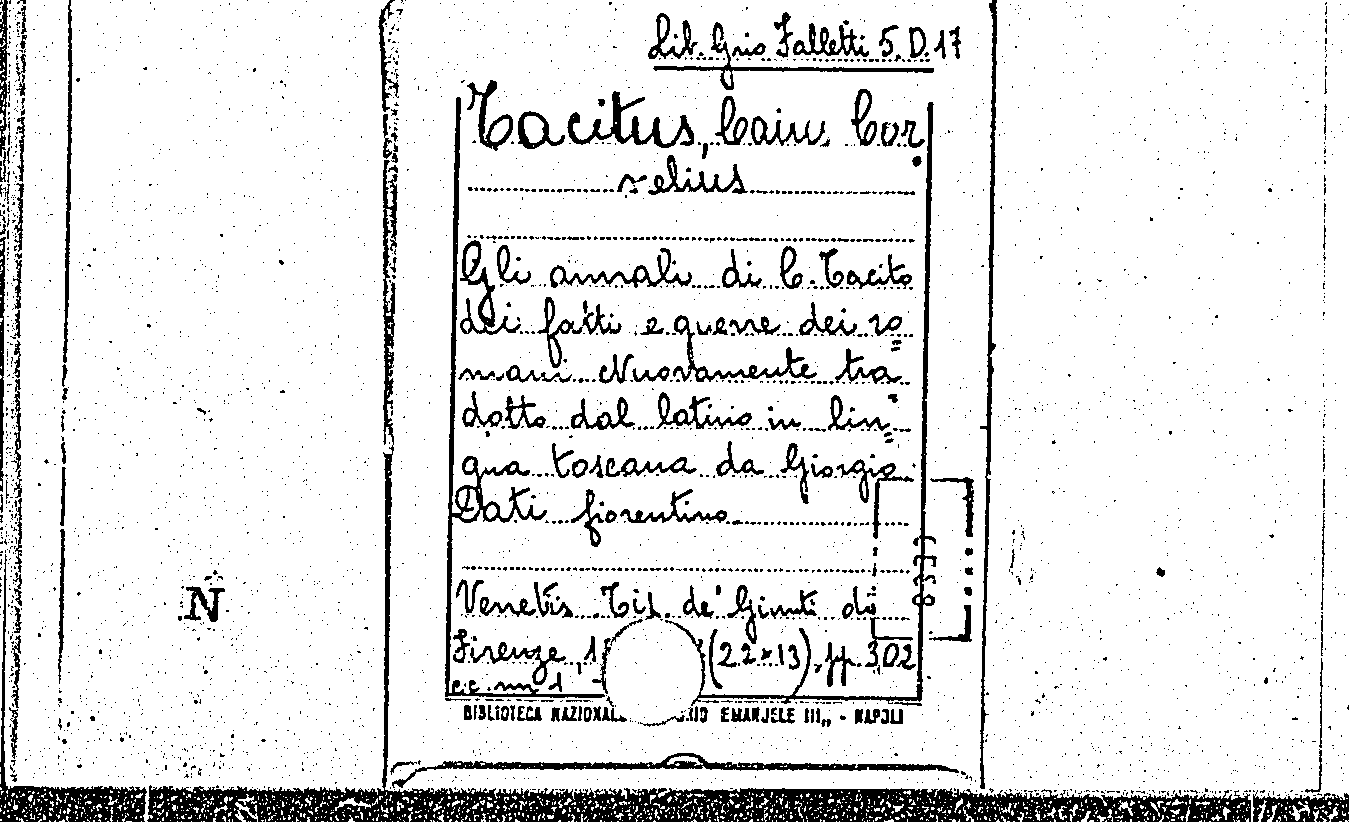 Lib. Grio Falletti 5. D. 17
Tacitus, Caius Cor
nelius
Gli annali di C. Tacito
dei fatti e guerre dei ro=
mani Nuovamente tra=
dotto dal latino in lin=
gua toscana da Giorgio
Dati fiorentino.
Venetis Tip. de' Giunti di
Firenze, 1 (22x13), pp. 302
c.c. nn 1 -
BIBLIOTECA NAZIONAL EMANUELE III,, - NAPOLI
N